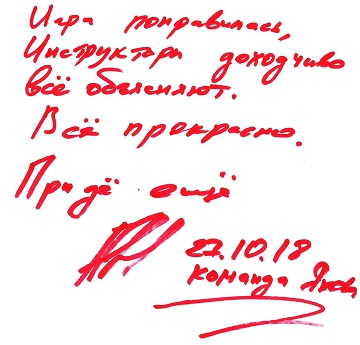 Игра понравилась,
Инструктари доходчиво
всё объясняют.
Всё прекрасно.
Придё ещё
27.10.18
Команда